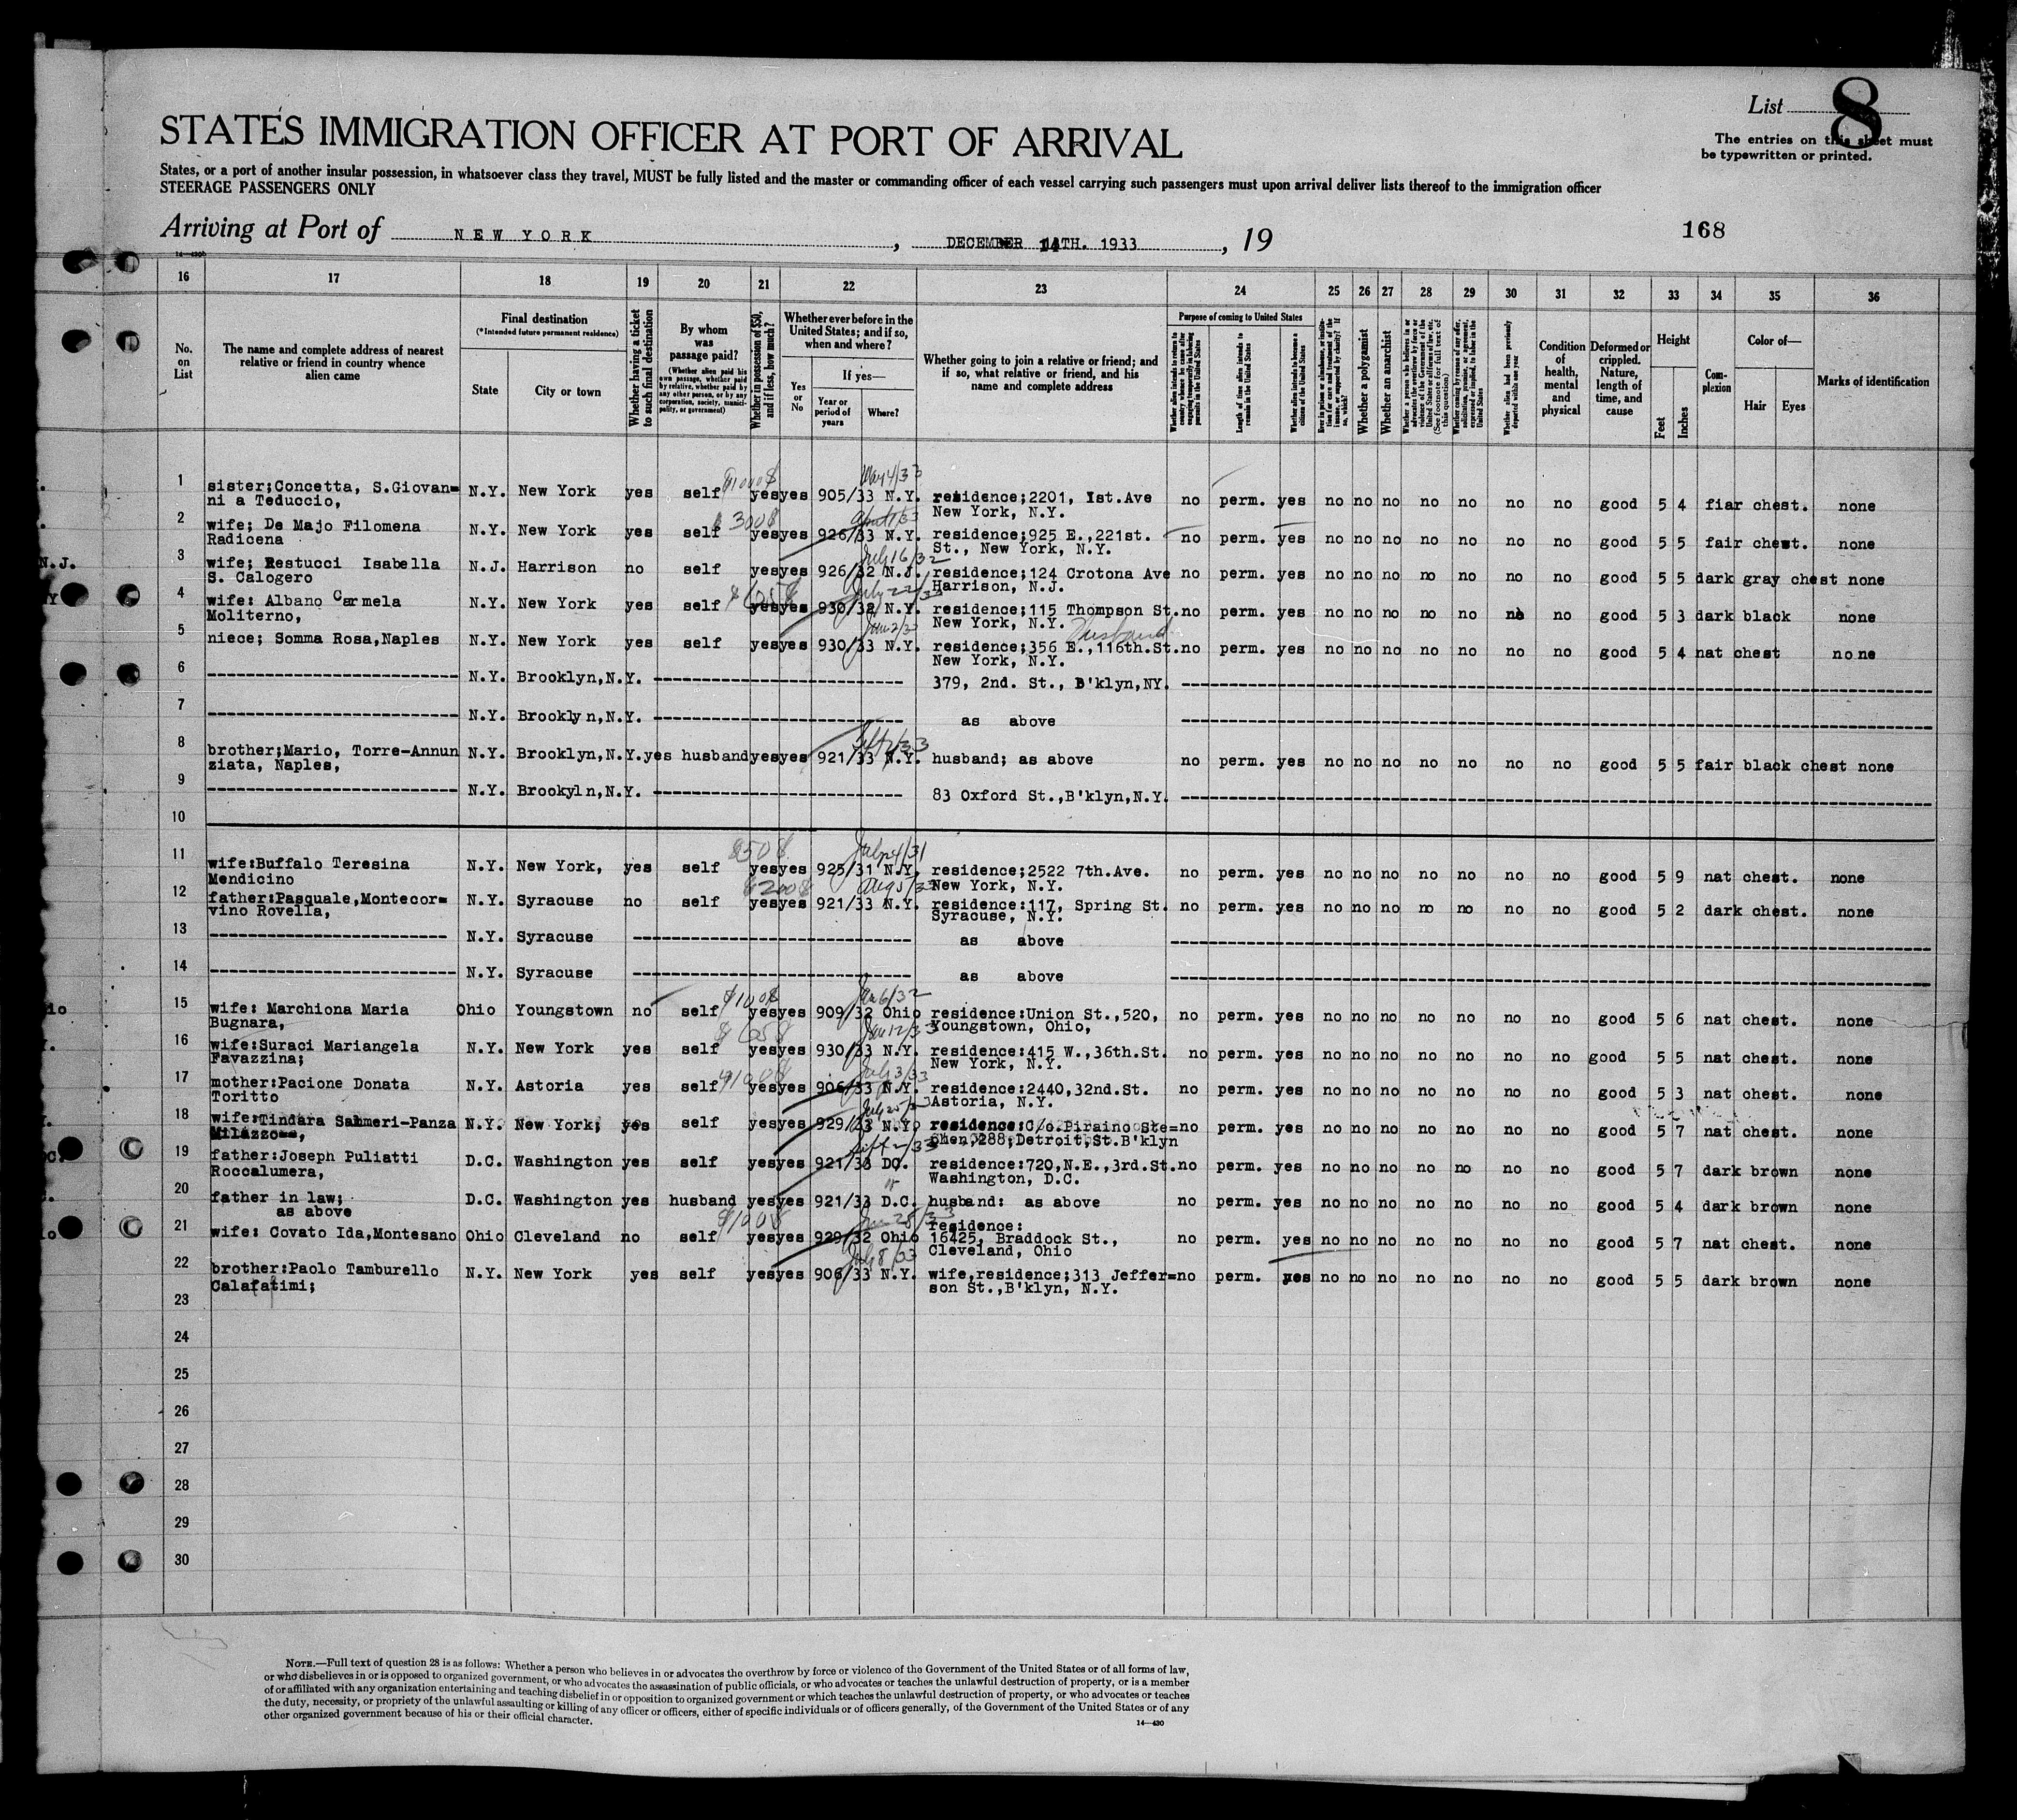 List 8
The entries on this sheet must
be typewritten or printed.
STATES IMMIGRATION OFFICER AT PORT OF ARRIVAL
States, or a port of another insular possession, in whatsoever class they travel, MUST be fully listed and the master or commanding officer of each vessel carrying such passengers must upon arrival deliver lists thereof to the immigration officer
STEERAGE PASSENGERS ONLY
Arriving at Port of NEW YORK, DECEMBER 14TH. 1933, 19
168
16 17 18 19 20 21 22 23 24 25 26 27 28 29 30 31 32 33 34 35 36
No. on List
The name and complete address of nearest relative or friend in country whence alien came
Final destination
(*Intended future permanent residence)
State
City or town
Whether having a ticket to such final destination
By whom was passage paid?
(Whether alien paid his own passage, whether paid by relative, whether paid by any other person, or by any corporation, society, municipality, or government)
Whether in possession of $50, and if less, how much?
Whether ever before in the United States; and if so, when and where?
Yes or No
If yes—
Year or period of years
Where?
Whether going to join a relative or friend; and if so, what relative or friend, and his name and complete address
Purpose of coming to United States
Length of time alien intends to remain in the United States
Whether alien intends to become a citizen of the United States
Whether a polygamist
Whether an anarchist
Whether alien had been previously deported within one year
Condition of health, mental and physical
Deformed or crippled. Nature, length of time, and cause
Height
Feet
Inches
Complexion
Color of—
Hair
Eyes
Marks of identification
1 sister;Concetta, S.Giovan= N.Y. New York yes self yes yes 905/33 N.Y. residence;2201, 1st.Ave no perm. yes no no no no no no no good 5 4 fiar chest. none
ni a Teduccio, New York, N.Y.
2 wife; De Majo Filomena N.Y. New York yes self yes yes 926/33 N.Y. residence;925 E.,221st. no perm. yes no no no no no no no good 5 5 fair chest. none
Radicena St., New York, N.Y.
3 wife; Restucci Isabella N.J. Harrison no self yes yes 926/32 N.J. residence;124 Crotona Ave no perm. yes no no no no no no no good 5 5 dark gray chest none
S. Calogero Harrison, N.J.
4 wife: Albano Carmela N.Y. New York yes self yes yes 930/32 N.Y. residence;115 Thompson St. no perm. yes no no no no no no no good 5 3 dark black none
Moliterno, New York, N.Y.
5 niece; Somma Rosa,Naples N.Y. New York yes self yes yes 930/33 N.Y. residence;356 E.,116th.St. no perm. yes no no no no no no no good 5 4 nat chest none
New York, N.Y. Husband
6 N.Y. Brooklyn,N.Y. 379, 2nd. St., B'klyn,NY.
7 N.Y. Brooklyn,N.Y. as above
8 brother;Mario, Torre-Annun N.Y. Brooklyn,N.Y. yes husband yes yes 921/33 N.Y. husband; as above no perm. yes no no no no no no no good 5 5 fair black chest none
ziata, Naples,
9 N.Y. Brookyln,N.Y. 83 Oxford St.,B'klyn,N.Y.
10
11 wife:Buffalo Teresina N.Y. New York, yes self yes yes 925/31 N.Y. residence;2522 7th.Ave. no perm. yes no no no no no no no good 5 9 nat chest. none
Mendicino New York, N.Y.
12 father:Pasquale,Montecor= N.Y. Syracuse no self yes yes 921/33 N.Y. residence:117, Spring St. no perm. yes no no no no no no no good 5 2 dark chest. none
vino Rovella, Syracuse, N.Y.
13 N.Y. Syracuse as above
14 N.Y. Syracuse as above
15 wife: Marchiona Maria Ohio Youngstown no self yes yes 909/32 Ohio residence:Union St.,520, no perm. yes no no no no no no no good 5 6 nat chest. none
Bugnara, Youngstown, Ohio,
16 wife:Suraci Mariangela N.Y. New York yes self yes yes 930/33 N.Y. residence:415 W.,36th.St. no perm. yes no no no no no no no good 5 5 nat chest. none
Favazzina; New York, N.Y.
17 mother:Pacione Donata N.Y. Astoria yes self yes yes 906/33 N.Y. residence:2440,32nd.St. no perm. yes no no no no no no no good 5 3 nat chest. none
Toritto Astoria, N.Y.
18 wife:Tindara Salmeri-Panza N.Y. New York; yes self yes yes 929/33 N.Y. residence:C/o.Piraino Ste= no perm. yes no no no no no no no good 5 7 nat chest. none
Milazzo, 288,Detroit,St.B'klyn
19 father:Joseph Puliatti D.C. Washington yes self yes yes 921/33 DC. residence:720,N.E.,3rd.St. no perm. yes no no no no no no no good 5 7 dark brown none
Roccalumera, Washington, D.C.
20 father in law; D.C. Washington yes husband yes yes 921/33 D.C. husband: as above no perm. yes no no no no no no no good 5 4 dark brown none
as above
residence:
21 wife: Covato Ida,Montesano Ohio Cleveland no self yes yes 929/32 Ohio 16425, Braddock St., no perm. yes no no no no no no no good 5 7 nat chest. none
Cleveland, Ohio
22 brother:Paolo Tamburello N.Y. New York yes self yes yes 906/33 N.Y. wife,residence;313 Jeffer= no perm. yes no no no no no no no good 5 5 dark brown none
Calafatimi; son St.,B'klyn, N.Y.
23
24
25
26
27
28
29
30
NOTE.—Full text of question 28 is as follows: Whether a person who believes in or advocates the overthrow by force or violence of the Government of the United States or of all forms of law,
or who disbelieves in or is opposed to organized government, or who advocates the assassination of public officials, or who advocates or teaches the unlawful destruction of property, or is a member
of or affiliated with any organization entertaining and teaching disbelief in or opposition to organized government or which teaches the unlawful destruction of property, or who advocates or teaches
the duty, necessity, or propriety of the unlawful assaulting or killing of any officer or officers, either of specific individuals or of officers generally, of the Government of the United States or of any
other organized government because of his or their official character.
14—430